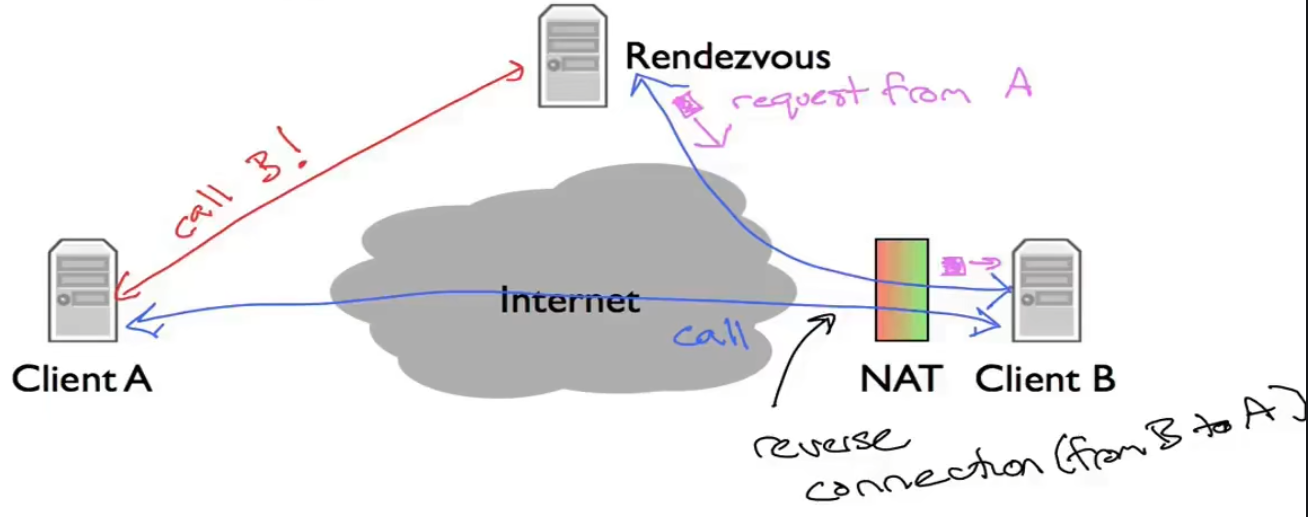 Rendezvous
request from A
call B!
Internet
call
Client A
NAT
Client B
reverse
connection (from B to A)